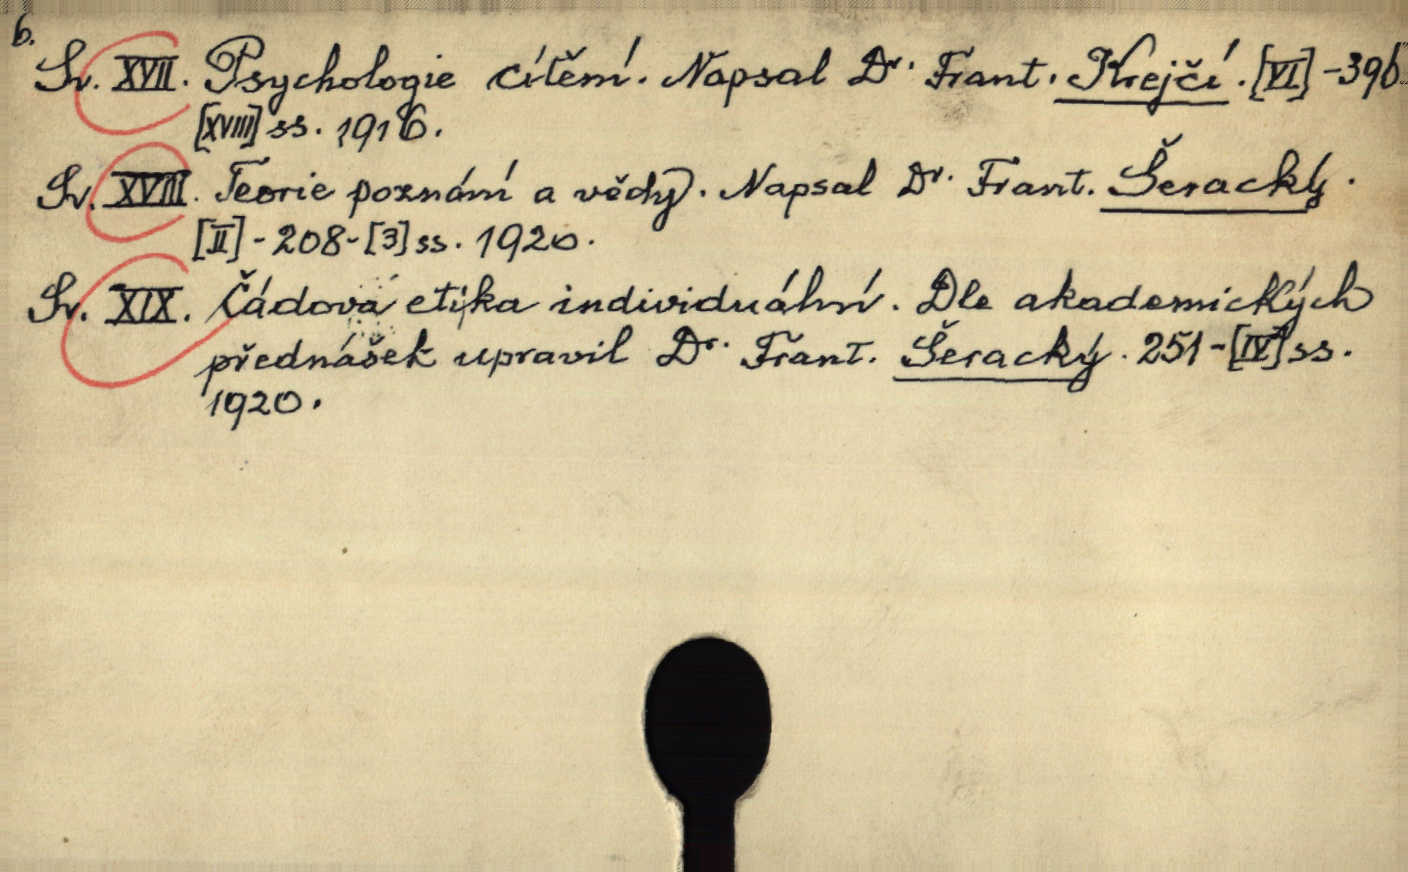 6.
Sv. XVII. Psychologie cítění. Napsal Dr. Frant. Krejčí. [VI] - 396
[XVIII] ss. 1916.
Sv. XVIII. Teorie poznání a vědy. Napsal Dr. Frant. Šeracký.
[II] - 208 - [3] ss. 1920.
Sv. XIX. Čádova etika individuální. Dle akademických
přednášek upravil Dr. Frant. Šeracký. 251 - [IV] ss.
1920.